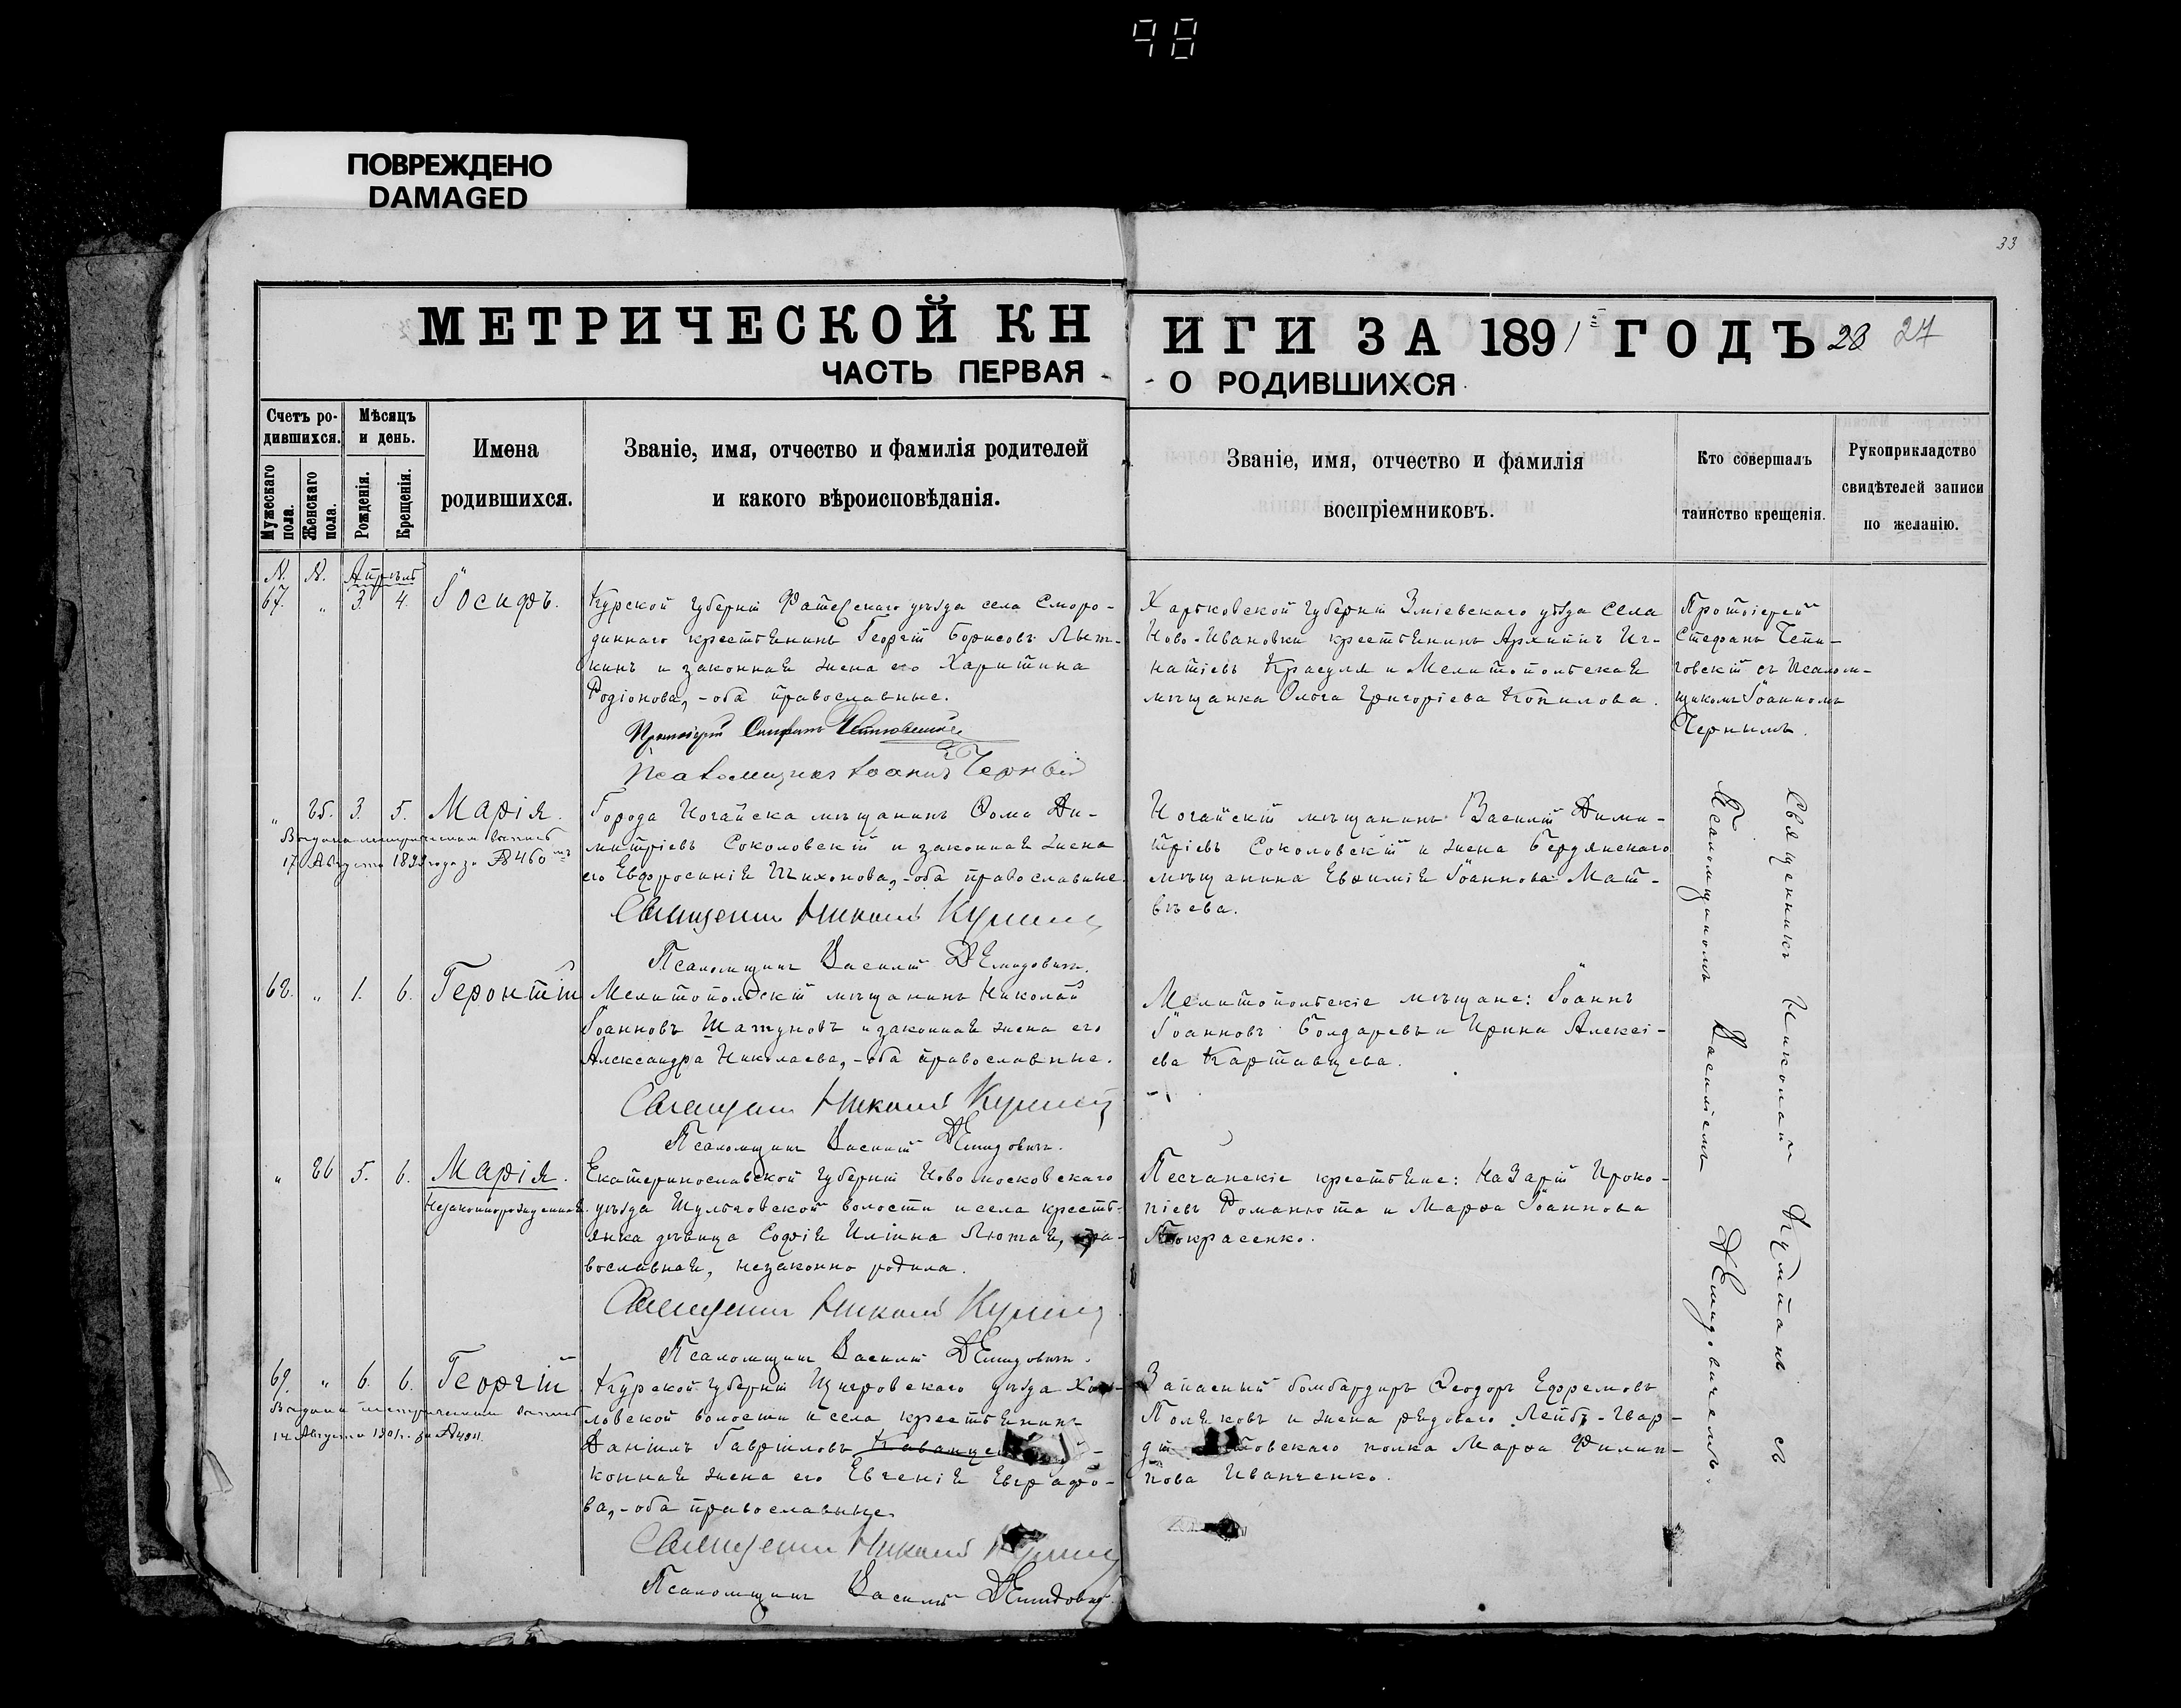 98
ПОВРЕЖДЕНО
DAMAGED
33
МЕТРИЧЕСКОЙ КНИГИ ЗА 1891 ГОДЪ 28 27
ЧАСТЬ ПЕРВАЯ - - О РОДИВШИХСЯ.
Счетъ ро-
дившихся.
Мужескаго пола.
Женскаго пола.
Мѣсяцъ
и день.
Рожденія.
Крещенія.
Имена
родившихся.
Званіе, имя, отчество и фамилія родителей
и какого вѣроисповѣданія.
Званіе, имя, отчество и фамилія
воспріемниковъ.
Кто совершалъ
таинство крещенія.
Рукоприкладство
свидѣтелей записи
по желанію.
№. №. Апрѣль
67. " 3. 4. Іосифъ.
Курской губерніи Фатежскаго уѣзда села Сморо-
диннаго крестьянинъ Георгій Борисовъ
и законная жена его Харитина
Родіонова, - оба православные.
Протоіерей Стефанъ
Псаломщикъ Іоаннъ Черный
Харьковской губерніи Зміевскаго уѣзда села
Ново-Ивановки крестьянинъ Архиппъ Иг-
натіевъ Красуля и Мелитопольская
мѣщанка Ольга Григоріева Копилова.
Протоіерей
Стефанъ
съ Псалом-
щикомъ Іоанномъ
Чернымъ.
" 25. 3. 5. Марія.
Выдана метрическая выпись
17 Августа 1899 года за № 460
Города Ногайска мѣщанинъ Ѳома Ди-
митріевъ Соколовскій и законная жена
его Евфросинія Тихонова, - оба православные.
Священникъ Николай
Псаломщикъ Василій Демидовичъ.
Ногайскій мѣщанинъ Василій Дими-
тріевъ Соколовскій и жена Бердянскаго
мѣщанина Евфимія Іоаннова Мат-
вѣева.
68. " 1. 6. Геронтій
Мелитопольскій мѣщанинъ Николай
Іоанновъ Шатуновъ и законная жена его
Александра Николаева, - оба православные.
Священникъ Николай
Псаломщикъ Василій Демидовичъ.
Мелитопольскіе мѣщане: Іоаннъ
Іоанновъ Болдаревъ и Ирина Алексі-
ева Картавцева.
" 26 5. 6. Марія.
Незаконнорожденная.
Екатеринославской губерніи Новомосковскаго
уѣзда Шульговской волости и села кресть-
янка дѣвица Софія Иліина Лютая, пра-
вославная, незаконно родила.
Священникъ Николай
Псаломщикъ Василій Демидовичъ.
Песчанскіе крестьяне: Назарій Проко-
піевъ Романюта и Марѳа Іоаннова
Покрасенко.
69. " 6. 6. Георгій
Выдана метрическая выпись
14 Августа 1901 г. за №
Курской губерніи Щигровскаго уѣзда
ловской волости и села крестьянинъ
Даніилъ Гавріиловъ
конная жена его Евгенія Евграфо-
ва, - оба православные.
Священникъ Николай
Псаломщикъ Василій Демидовичъ
Запасный бомбардиръ Ѳеодоръ Ефремовъ
Поляковъ и жена рядоваго Лейбъ-Гвар-
діи товскаго полка Марѳа Филип-
пова Иванченко.
Священникъ Николай Купманъ съ
Псаломщикомъ Василіемъ Демидовичемъ.